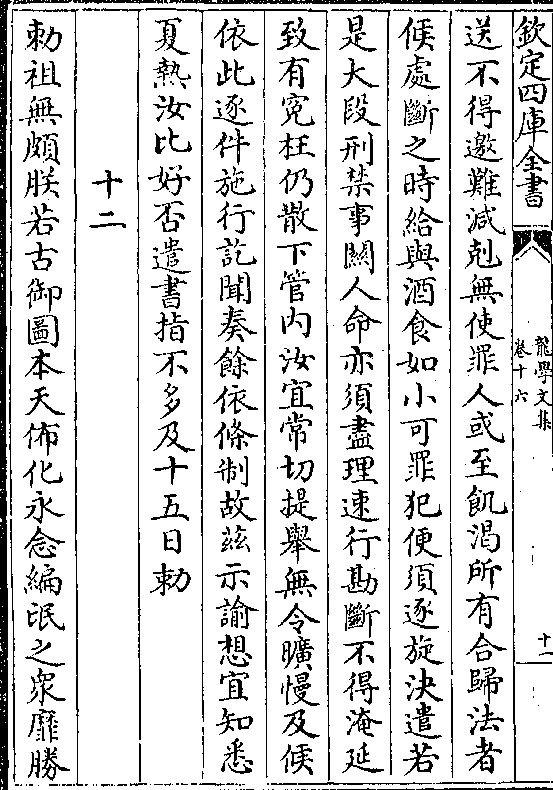 欽定四庫全書
龍學文集
卷十六
十一
送不得邀難減剋無使罪人或至飢渴所有合歸法者
候處斷之時給與酒食如小可罪犯便須逐旋決遣若
是大段刑禁事關人命亦須盡理速行勘斷不得淹延
致有冤枉仍散下管内汝宜常切提舉無令曠慢及候
依此逐件施行訖聞奏餘依條制故茲示諭想宜知悉
夏熱汝比好否遣書指不多及十五日勅
十二
勅祖無頗朕若古御圖本天佈化永念編氓之衆靡勝